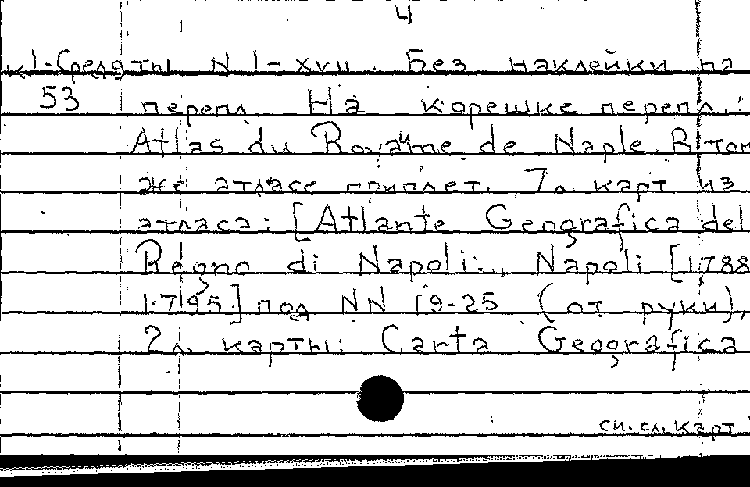 4
к1-Средяты N I-XVII. Без наклейки на
53 перепл. На корешке перепл.:
Atlas du Royaume de Naple. В том
же атласе приплет. 7 л. карт из
атласа: [Atlante Geografica del
Regno di Napoli., Napoli [1788
1795.] под NN 19-25 (от руки),
2 л. карты: Carta Geografica
см. сл. карт